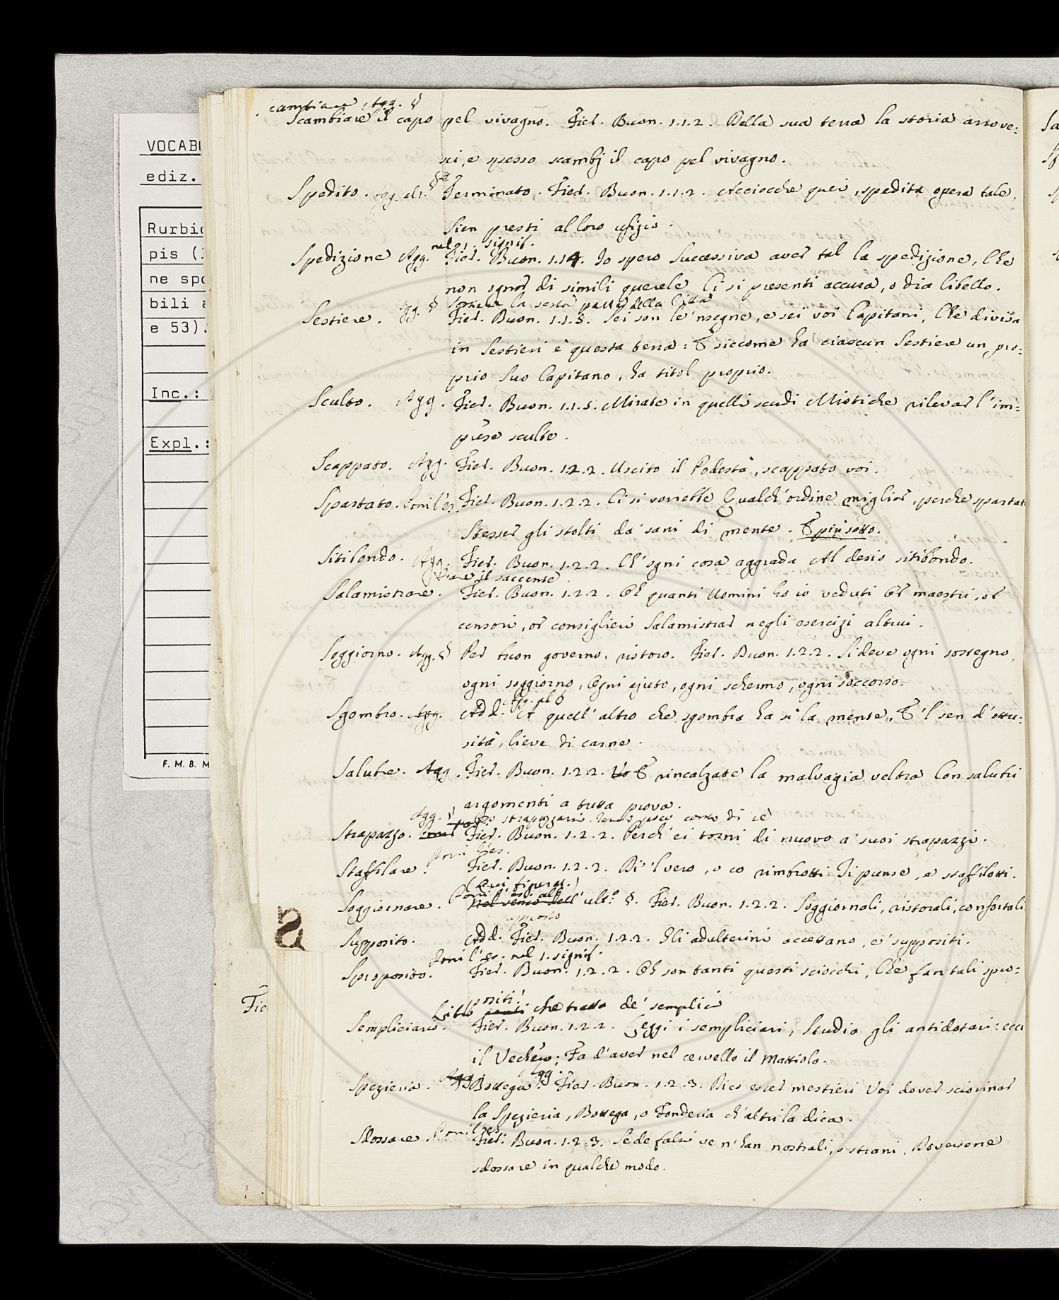 VOCABU
ediz.
Rurbic
pis (
ne spo
bili a
e 53).
Inc.:
Expl.:
F. M. B. M
cambiare, Agg. §
Scambiare il capo pel vivagno. Fier. Buon. 1.1.2. Della sua terra la storia arrove:
sci, e spesso scambj il capo pel vivagno.
Spedito. Agg. al §. Terminato. Fier. Buon. 1.1.2. Acciocchè quei, spedita opera tale,
Sien presti al loro ufizio.
nel 1. signif.
Spedizione Agg. Fier. Buon. 1.1.4. Io spero successiva aver tal la spedizione, Che
non ignor di simili querele Ci si presenti accusa, o dia libello.
Agg. § Sestiere la sesta parte della Città
Sestiere. Fier. Buon. 1.1.5. Sei son le 'nsegne, e sei voi Capitani, Che divisa
in Sestieri è questa terra: E siccome ha ciascun Sestiere un pro:
prio suo Capitano, ha titol proprio.
Sculto. Agg. Fier. Buon. 1.1.5. Mirate in quelli scudi Mistiche rilevar l'im:
prese sculte.
Scappato. Agg. Fier. Buon. 1.2.2. Uscito il Podestà, scappato voi.
Spartato. Fier. Buon. 1.2.2. Ci si vorrebbe Qualch'ordine miglior, perchè spartati
Stesser gli stolti da' sani di mente. E più sotto.
Sitibondo. Agg. Fier. Buon. 1.2.2. Ch'ogni cosa aggrada Al desio sitibondo.
Fare il saccente.
Salamistrare. Fier. Buon. 1.2.2. Oh quanti Uomini ho io veduti Or maestri, or
censori, or consiglieri Salamistrar negli esercizi altrui.
Soggiorno. Agg. § Per buon governo, ristoro. Fier. Buon. 1.2.2. Si deve ogni sostegno,
ogni soggiorno, Ogni ajuto, ogni schermo, ogni soccorso.
Sgombro. Agg. Add. A quell'altro che sgombra ha sì la mente, E 'l sen d'ottu:
sità, lieve di carne.
Salubre. Agg. Fier. Buon. 1.2.2. E rincalzate la malvagia veltra Con salubri
argomenti a tutta prova.
Strapazzo. Agg. § Fier. Buon. 1.2.2. Perch'ei torni di nuovo a' suoi strapazzi.
Staffilare. Fier. Buon. 1.2.2. Di 'l vero, o co rimbrotti Ti punse, e staffilotti.
(Qui figurat.)
Soggiornare. ult.° §. Fier. Buon. 1.2.2. Soggiornali, ristorali, confortali
apposto
Supposito. Add. Fier. Buon. 1.2.2. Gli adulterini accettano, e i suppositi.
nel 1. signif.
Sproposito. Fier. Buon. 1.2.2. Oh son tanti questi sciocchi, Che fan tali spro:
positi!
Fie
Libro che tratta de' semplici
Sempliciario. Fier. Buon. 1.2.2. Leggi i sempliciari, Studia gli antidotari: ecco
il Vechero; Fa d'aver nel cervello il Mattiolo.
Spezieria. Agg. Bottega Fier. Buon. 1.2.3. Pien esser mestieri Voi dover sciorinar
la Spezieria, Bottega, o Fonderia ch'altri la dica.
Sdossare. Fier. Buon. 1.2.3. Se de falsi ve n'han nostrali, o strani. Doversene
sdossare in qualche modo.
S